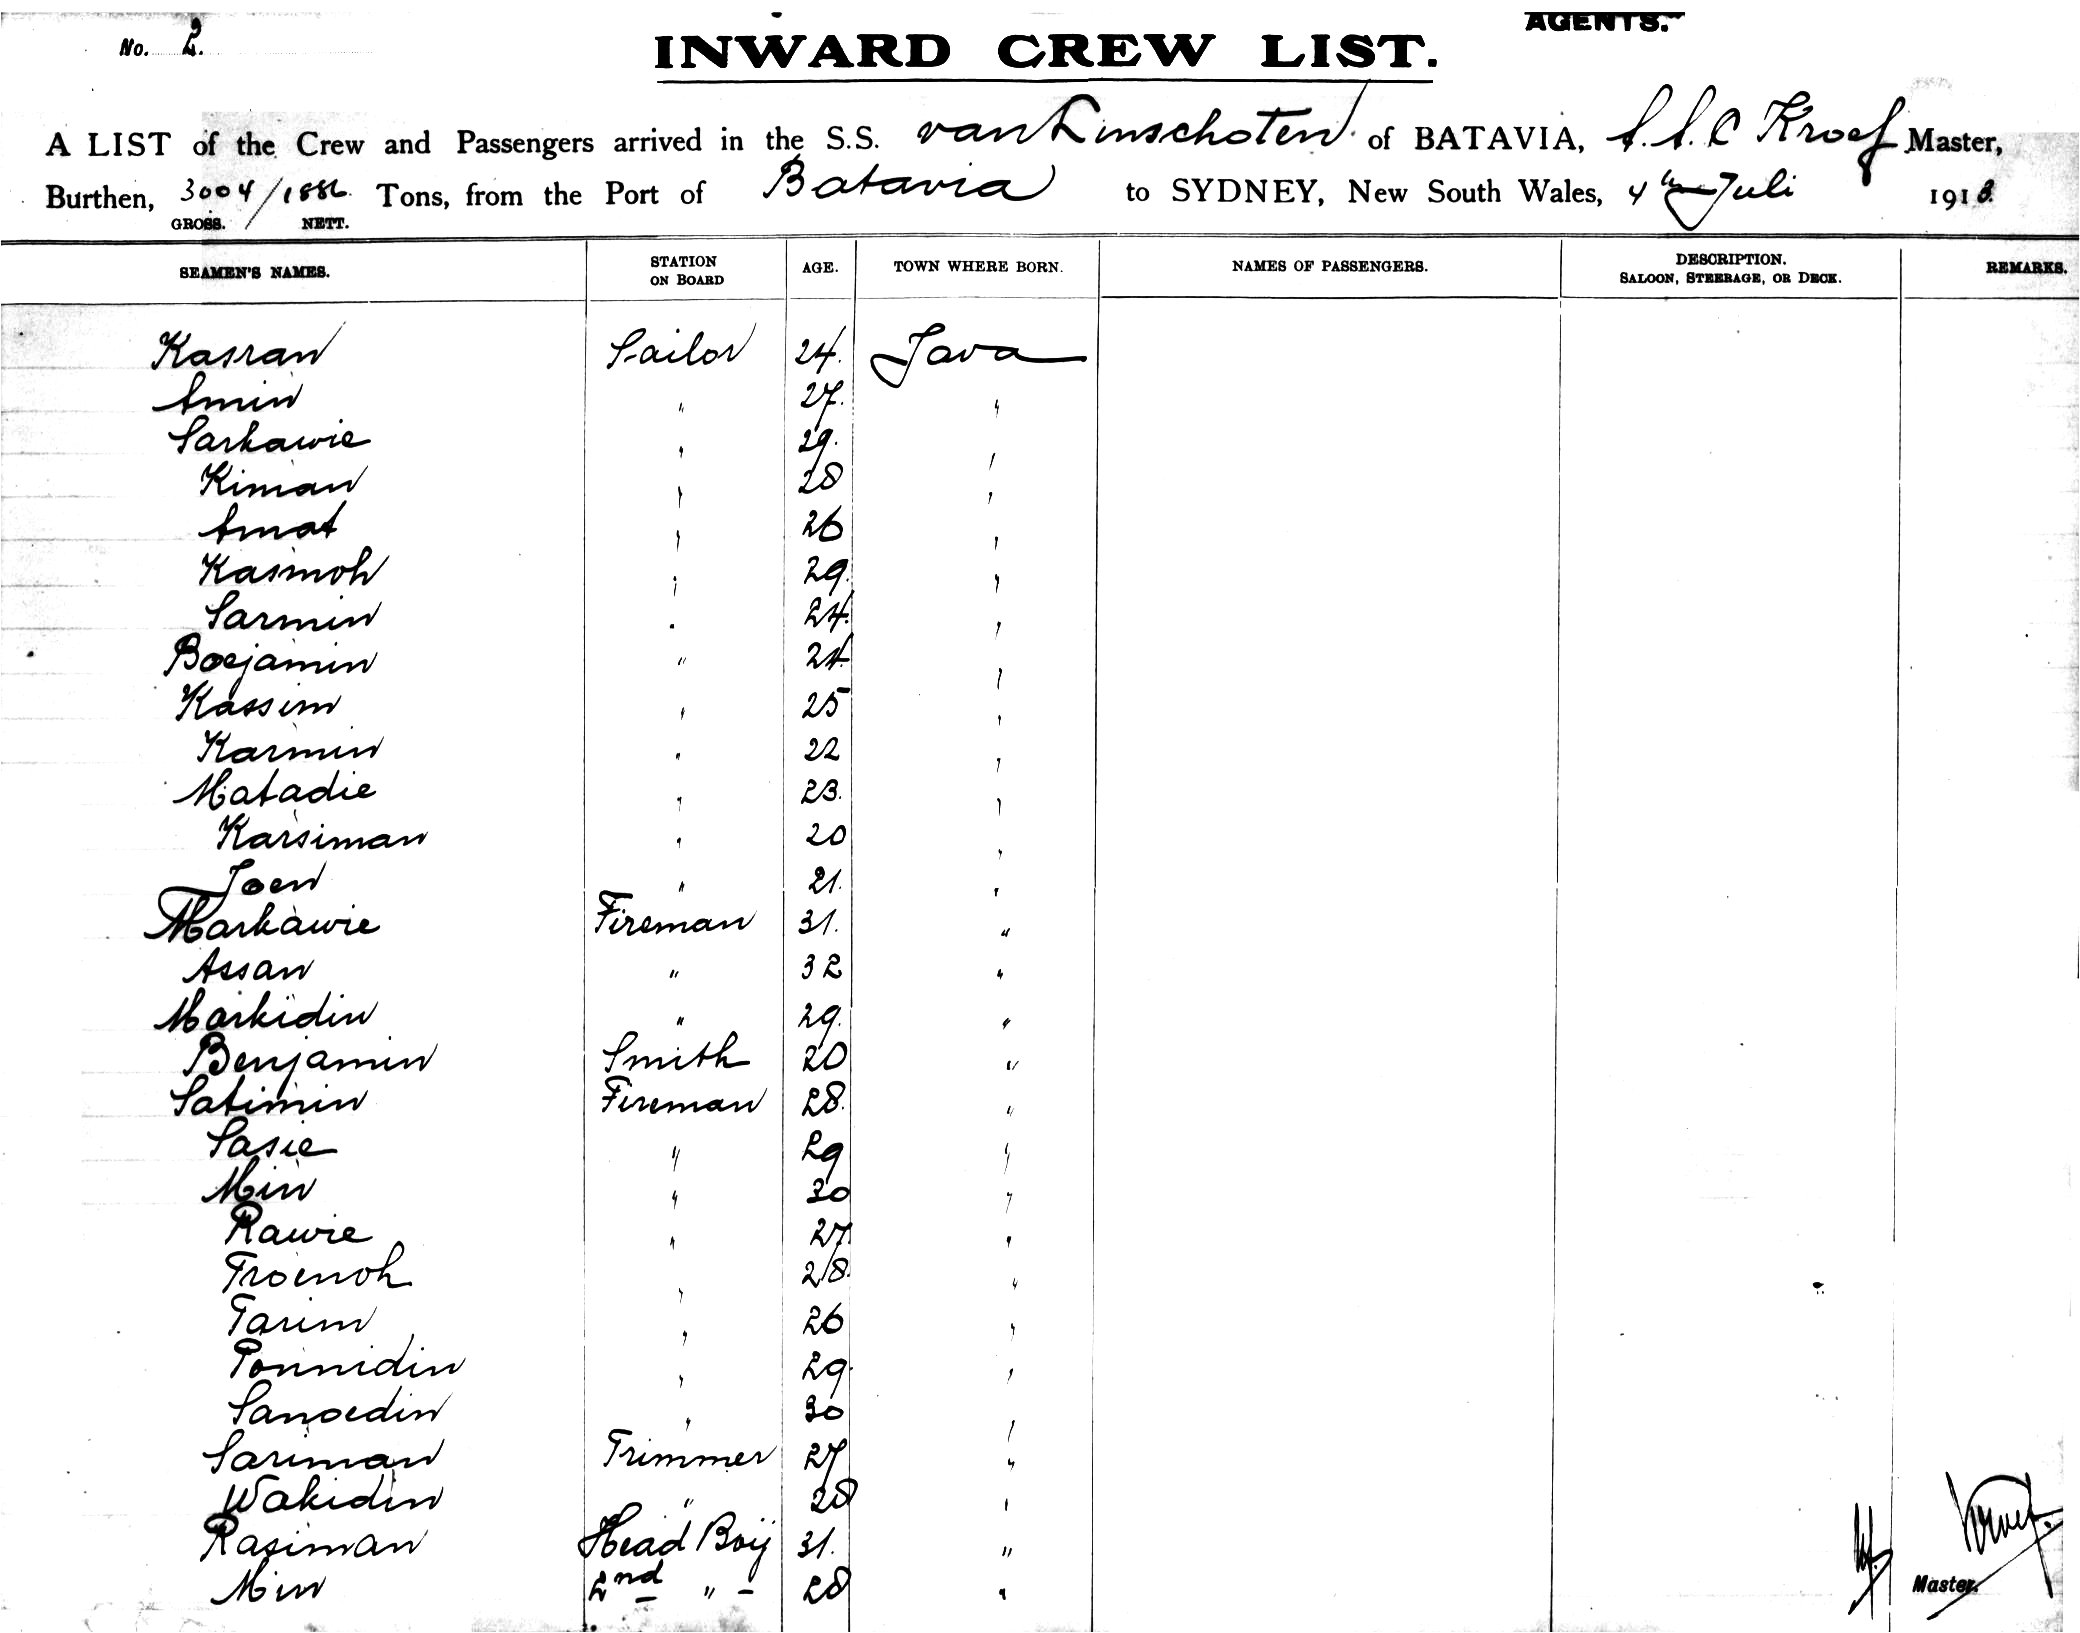 No. 2.
AGENTS.
INWARD CREW LIST.
A LIST of the Crew and Passengers arrived in the S.S. van Linschoten of BATAVIA, Kroef Master,
Burthen, 3004/1886 Tons, from the Port of Batavia to SYDNEY, New South Wales, 4th Juli 1913.
GROSS. NETT.
SEAMEN'S NAMES. STATION ON BOARD AGE. TOWN WHERE BORN. NAMES OF PASSENGERS. DESCRIPTION. SALOON, STEERAGE, OR DECK. REMARKS.
Kasran Sailor 24. Java
Amin " 27. "
Sarkawie " 29. "
Kiman " 28 "
Amat " 26 "
Kasmoh " 29. "
Sarmin " 24. "
Boejamin " 24. "
Kassim " 25 "
Karmin " 22 "
Matadie " 23. "
Karsiman " 20 "
Joen " 21. "
Markawie Fireman 31. "
Assan " 32 "
Markidin " 29. "
Benjamin Smith 20 "
Satimin Fireman 28. "
Sasie " 29 "
Min " 30 "
Rawie " 27. "
Troenoh " 28. "
Tarim " 26 "
Ponnidin " 29. "
Sanoedin " 30 "
Sariman Trimmer 27 "
Wakidin " 28 "
Rasiman Head Boy 31. "
Min 2nd " - 28 "
Master.